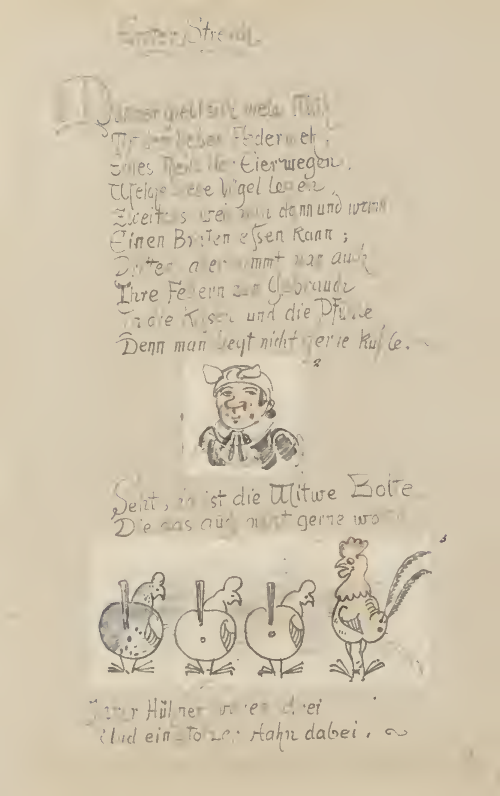 Erster Streich
Mancher giebt sich viele Müh
Mit dem lieben Federvieh;
Eines Theils der Eier wegen,
Welche diese Vögel legen,
Zweitens weil man dann und wann
Einen Braten essen kann;
Drittens aber nimmt man auch
Ihre Federn zum Gebrauch
In die Kissen und die Pfühle
Denn man liegt nicht gerne kühle.
2
Seht, da ist die Witwe Bolte
Die das auch nicht gerne wollte
3
Ihrer Hühner waren drei
Und ein stolzer Hahn dabei.